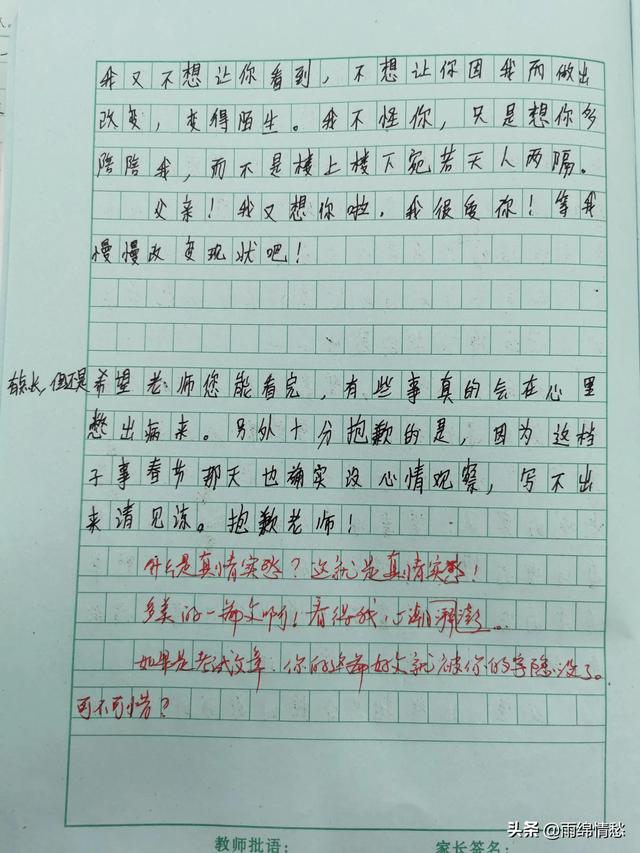 我又不想让你看到，不想让你因我而做出
改变，变得陌生。我不怪你，只是想你多
陪陪我，而不是楼上楼下宛若天人两隔。
父亲！我又想你啦，我很爱你！等我
慢慢改变现状吧！
有点长，但还是希望老师您能看完，有些事真的会在心里
憋出病来。另外十分抱歉的是，因为这档
子事春节那天也确实没心情观察，写不出
来请见谅。抱歉老师！
什么是真情实感？这就是真情实感！
多美的一篇文啊！看得我心潮澎湃…
如果是考试文章，你的这篇好文就被你的字隐没了。
可不可惜？
教师批语：
家长签名：
头条 @雨绵情愁